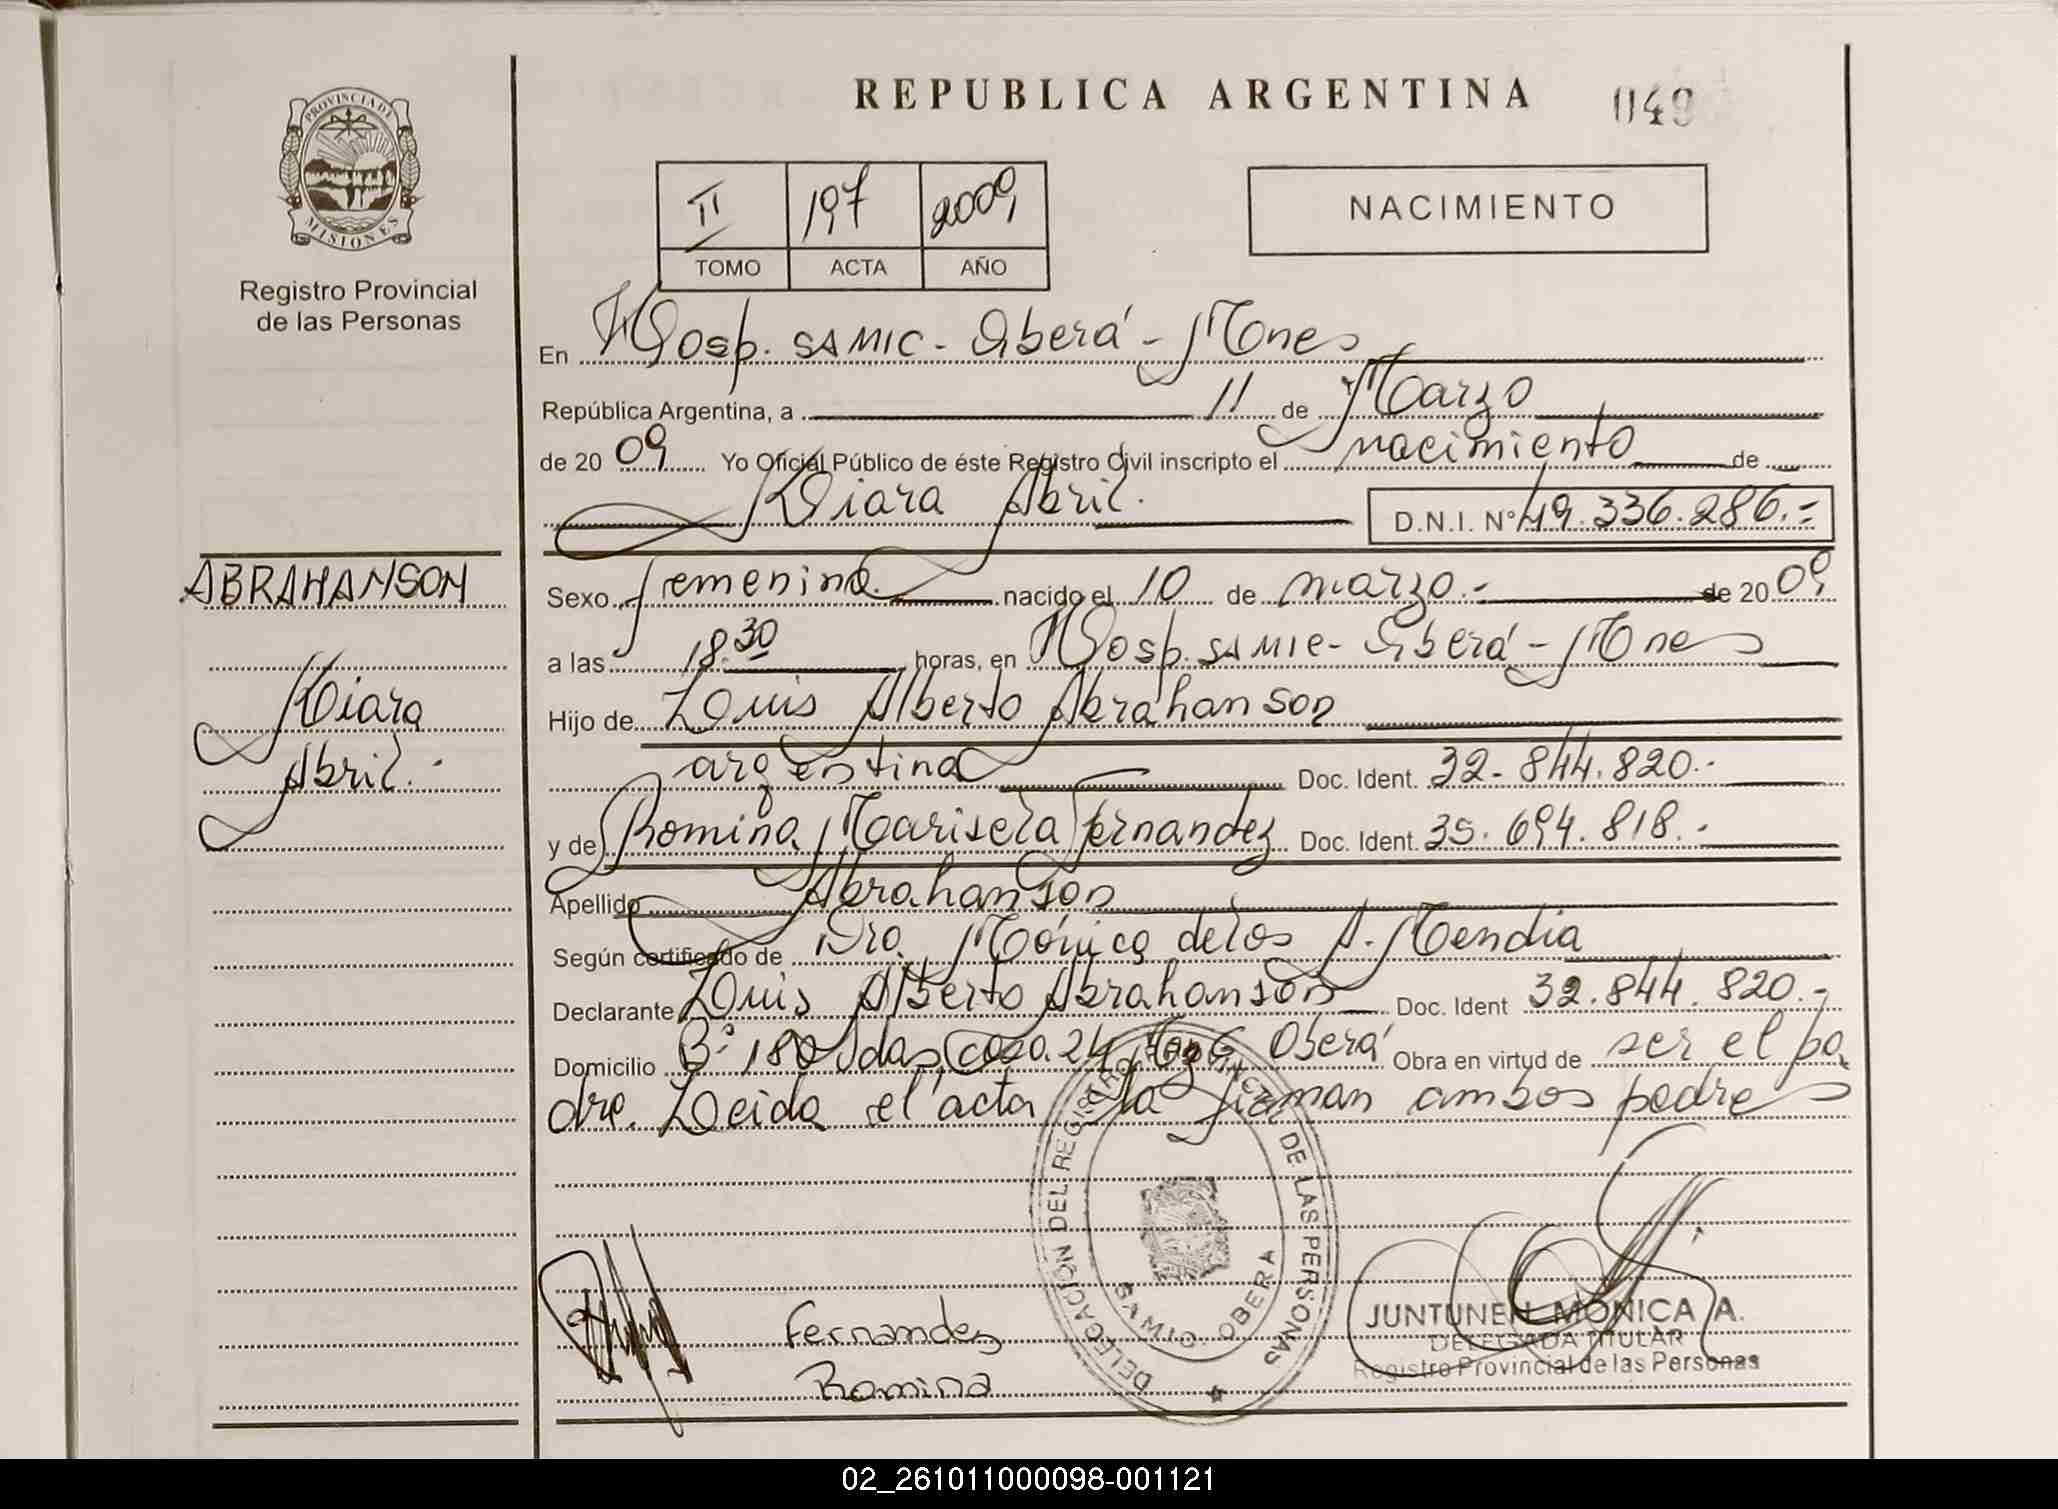 REPUBLICA ARGENTINA
049
PROVINCIA DE
MISIONES
Registro Provincial
de las Personas
II 197 2009
TOMO ACTA AÑO
NACIMIENTO
En Hosp. SAMIC - Oberá - Mnes
República Argentina, a 11 de Marzo
de 2009 Yo Oficial Público de éste Registro Civil inscripto el nacimiento de
Kiara Abril. D.N.I. N° 49.336.286.=
ABRAHANSON
Kiara
Abril.-
Sexo femenino. nacido el 10 de marzo.- de 2009
a las 18.30 horas, en Hosp. SAMIC - Oberá - Mnes
Hijo de Luis Alberto Abrahanson
argentino Doc. Ident. 32.844.820.-
y de Romina Marisela Fernandez Doc. Ident. 35.694.818.-
Apellido Abrahanson
Según certificado de Dra. Mónica de los A. Mendia
Declarante Luis Alberto Abrahanson Doc. Ident 32.844.820.-
Domicilio B° 180 Vdas, casa 24 Oberá Obra en virtud de ser el pa
dre. Leida el acta la firman ambos padres
DELEGACIÓN DEL REGISTRO PROVINCIAL DE LAS PERSONAS
OBERA
Fernandez
Romina
JUNTUNEN, MONICA A.
DELEGADA TITULAR
Registro Provincial de las Personas
02_261011000098-001121